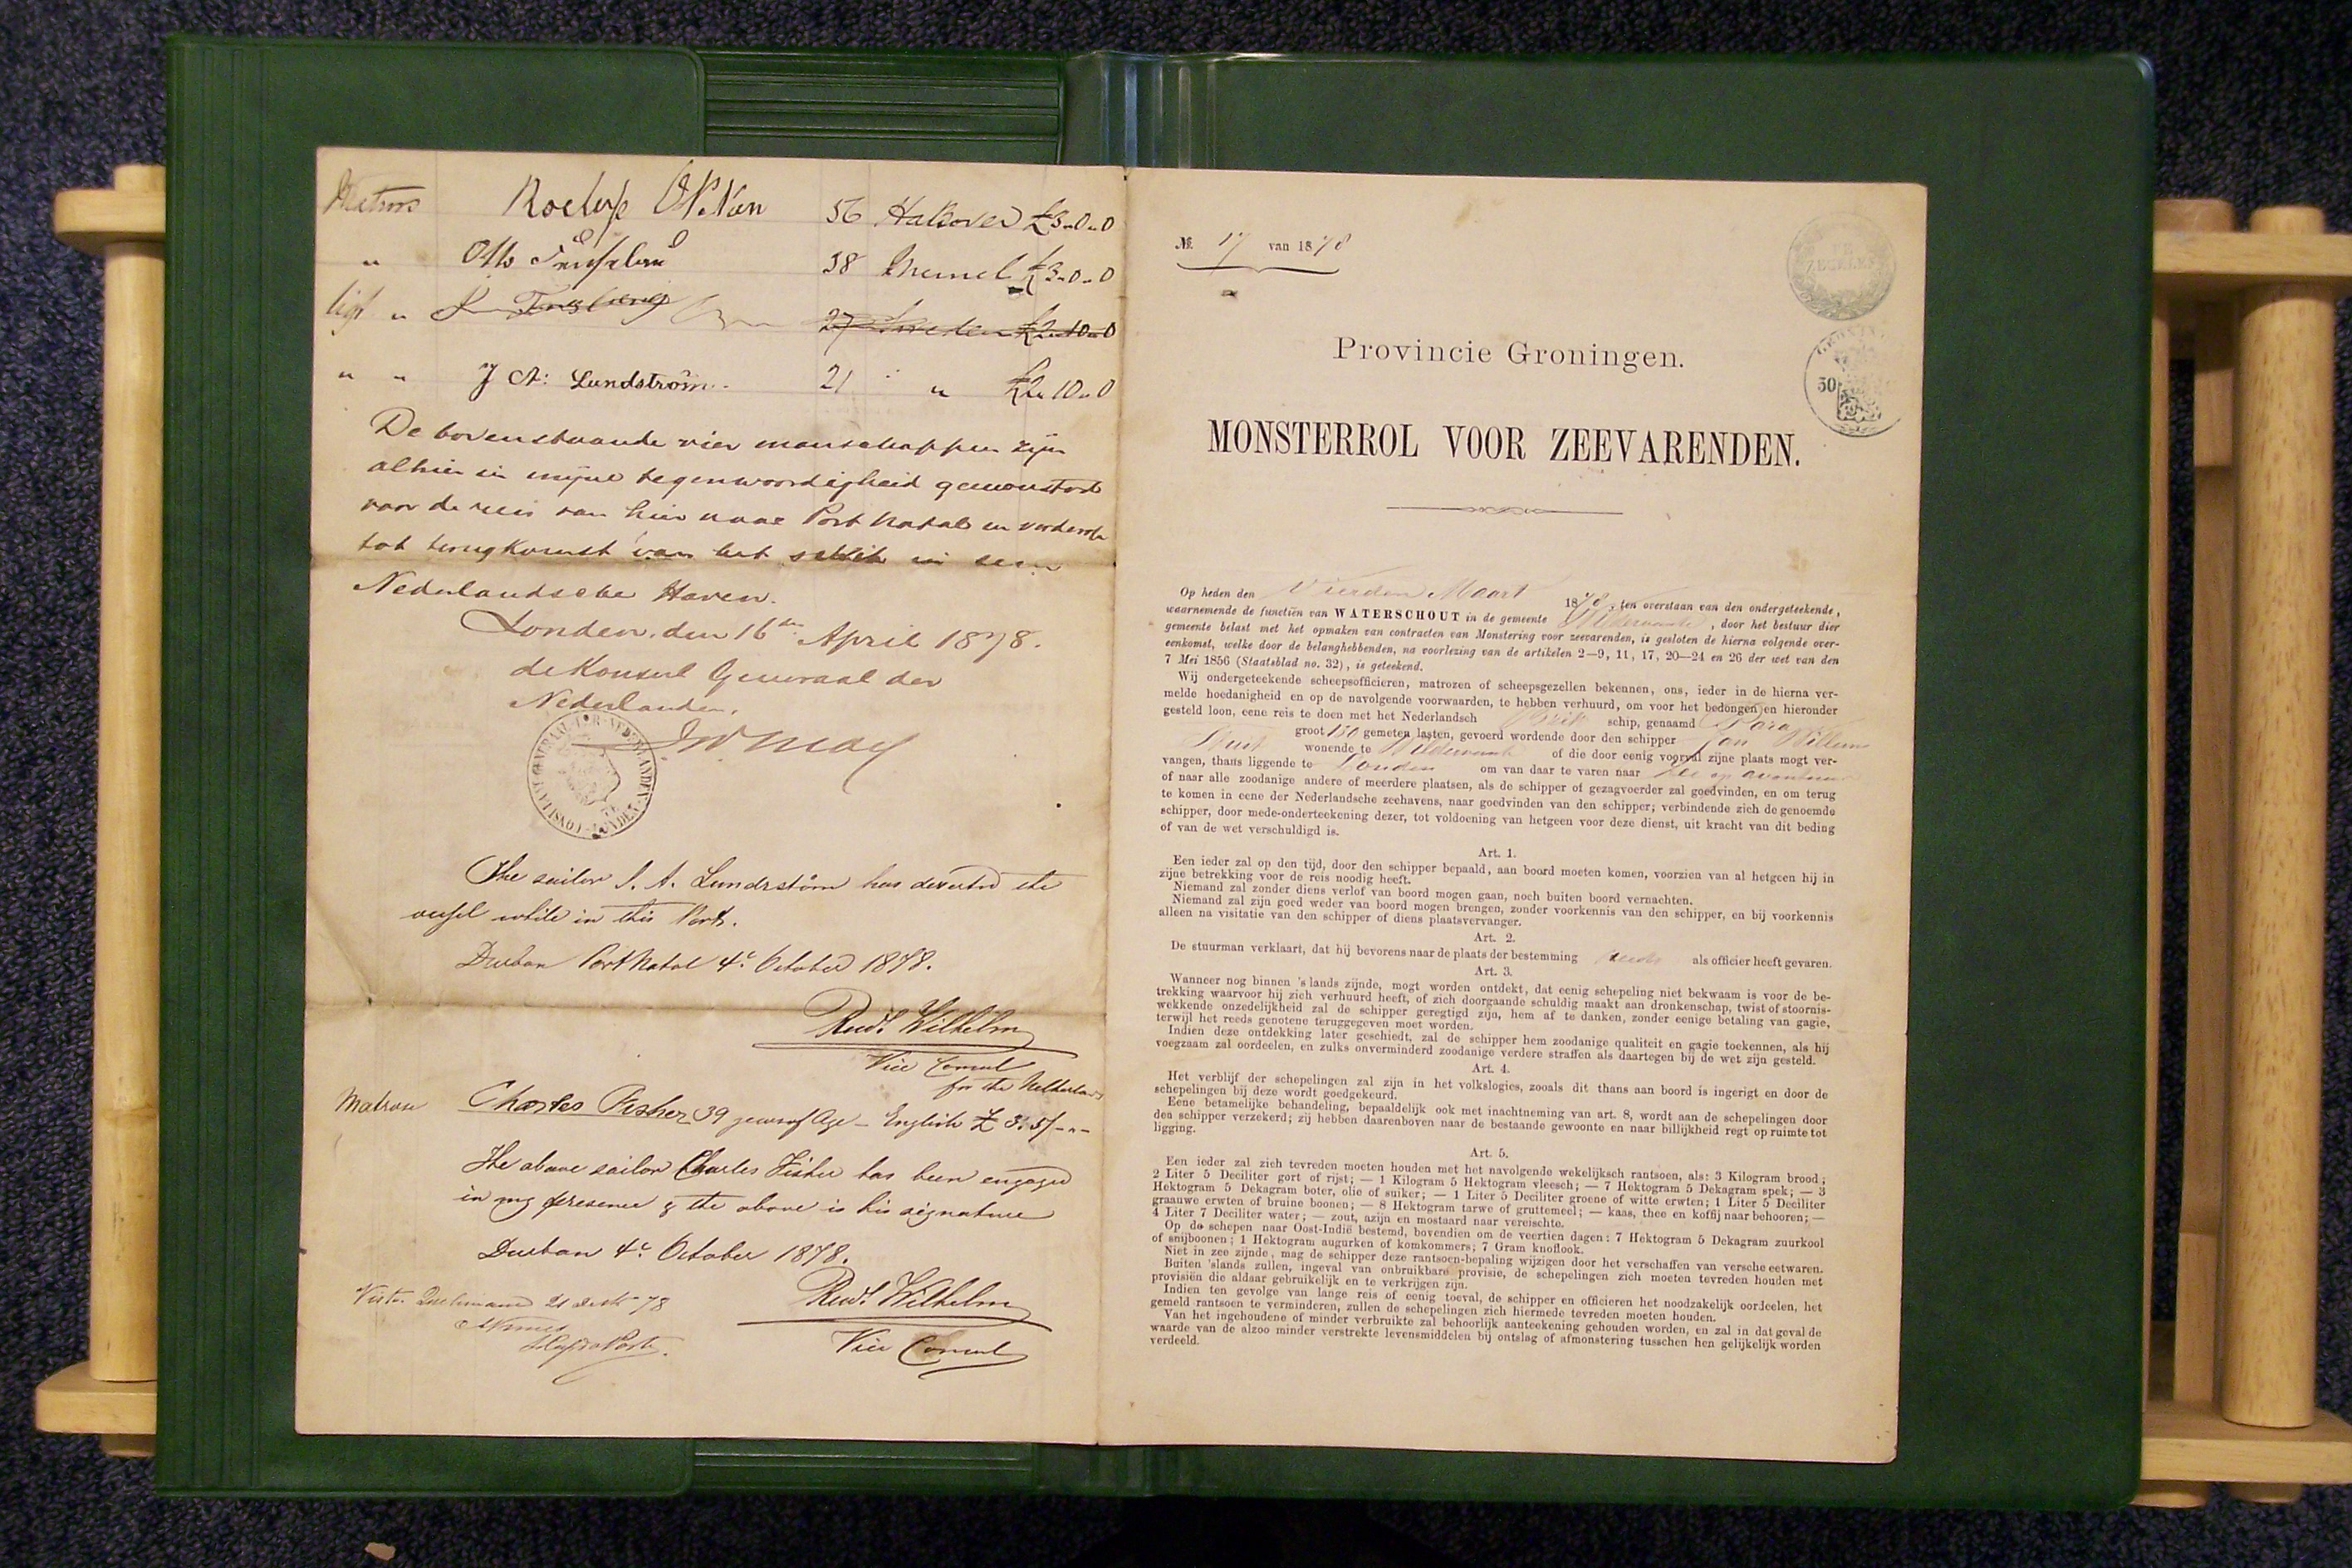 Matroos Roelof 56 Hannover £3.0.0
" Otto 38 Memel £3.0.0
ligt " 27 Sweden £2.10.0
" " J A: Lundström. 21 " " £2.10.0
De bovenstaande vier manschappen zijn
alhier in mijne tegenwoordigheid gemonsterd
voor de reis van hier naar Port Natal en verders
tot terugkomst van het schip in een
Nederlandsche Haven.
Londen, den 16den April 1878.
de Konsul Generaal der
Nederlanden.
J W May
CONSULAAT GENERAAL DER NEDERLANDEN LONDEN
The sailor J. A. Lundström has deserted the
vessel while in this Port.
Durban Port Natal 4t October 1878.
Rud. Wilhelm
Vice Consul
for the Netherlands
Matrose Charles Fisher 39 years of Age – English £ 3.5/-"-
The above sailor Charles Fisher has been engaged
in my presence & the above is his signature
Durban 4t October 1878.
Rud. Wilhelm
Vice Consul
78
№. 17 van 1878
ZEGELEN
50
Provincie Groningen.
MONSTERROL VOOR ZEEVARENDEN.
Op heden den Vierden Maart 1878, ten overstaan van den ondergeteekende,
waarnemende de functiën van WATERSCHOUT in de gemeente Wildervank, door het bestuur dier
gemeente belast met het opmaken van contracten van Monstering voor zeevarenden, is gesloten de hierna volgende over-
eenkomst, welke door de belanghebbenden, na voorlezing van de artikelen 2—9, 11, 17, 20—24 en 26 der wet van den
7 Mei 1856 (Staatsblad no. 32), is geteekend.
Wij ondergeteekende scheepsofficieren, matrozen of scheepsgezellen bekennen, ons, ieder in de hierna ver-
melde hoedanigheid en op de navolgende voorwaarden, te hebben verhuurd, om voor het bedongen en hieronder
gesteld loon, eene reis te doen met het Nederlandsch Brik schip, genaamd Para
groot 130 gemeten lasten, gevoerd wordende door den schipper Jan Willem
wonende te Wildervank of die door eenig voorval zijne plaats mogt ver-
vangen, thans liggende te Londen om van daar te varen naar Zee op avontuur
of naar alle zoodanige andere of meerdere plaatsen, als de schipper of gezagvoerder zal goedvinden, en om terug
te komen in eene der Nederlandsche zeehavens, naar goedvinden van den schipper; verbindende zich de genoemde
schipper, door mede-onderteekening dezer, tot voldoening van hetgeen voor deze dienst, uit kracht van dit beding
of van de wet verschuldigd is.
Art. 1.
Een ieder zal op den tijd, door den schipper bepaald, aan boord moeten komen, voorzien van al hetgeen hij in
zijne betrekking voor de reis noodig heeft.
Niemand zal zonder diens verlof van boord mogen gaan, noch buiten boord vernachten.
Niemand zal zijn goed weder van boord mogen brengen, zonder voorkennis van den schipper, en bij voorkennis
alleen na visitatie van den schipper of diens plaatsvervanger.
Art. 2.
De stuurman verklaart, dat hij bevorens naar de plaats der bestemming als officier heeft gevaren.
Art. 3.
Wanneer nog binnen 's lands zijnde, mogt worden ontdekt, dat eenig schepeling niet bekwaam is voor de be-
trekking waarvoor hij zich verhuurd heeft, of zich doorgaande schuldig maakt aan dronkenschap, twist of stoornis-
wekkende onzedelijkheid zal de schipper geregtigd zijn, hem af te danken, zonder eenige betaling van gagie,
terwijl het reeds genotene teruggegeven moet worden.
Indien deze ontdekking later geschiedt, zal de schipper hem zoodanige qualiteit en gagie toekennen, als hij
voegzaam zal oordeelen, en zulks onverminderd zoodanige verdere straffen als daartegen bij de wet zijn gesteld.
Art. 4.
Het verblijf der schepelingen zal zijn in het volkslogies, zooals dit thans aan boord is ingerigt en door de
schepelingen bij deze wordt goedgekeurd.
Eene betamelijke behandeling, bepaaldelijk ook met inachtneming van art. 8, wordt aan de schepelingen door
den schipper verzekerd; zij hebben daarenboven naar de bestaande gewoonte en naar billijkheid regt op ruimte tot
ligging.
Art. 5.
Een ieder zal zich tevreden moeten houden met het navolgende wekelijksch rantsoen, als: 3 Kilogram brood;
2 Liter 5 Deciliter gort of rijst; — 1 Kilogram 5 Hektogram vleesch; — 7 Hektogram 5 Dekagram spek; — 3
Hektogram 5 Dekagram boter, olie of suiker; — 1 Liter 5 Deciliter groene of witte erwten; 1 Liter 5 Deciliter
graauwe erwten of bruine boonen; — 8 Hektogram tarwe of gruttemeel; — kaas, thee en koffij naar behooren; —
4 Liter 7 Deciliter water; — zout, azijn en mostaard naar vereischte.
Op de schepen naar Oost-Indië bestemd, bovendien om de veertien dagen: 7 Hektogram 5 Dekagram zuurkool
of snijboonen; 1 Hektogram augurken of komkommers; 7 Gram knoflook.
Niet in zee zijnde, mag de schipper deze rantsoen-bepaling wijzigen door het verschaffen van versche eetwaren.
Buiten 'slands zullen, ingeval van onbruikbare provisie, de schepelingen zich moeten tevreden houden met
provisiën die aldaar gebruikelijk en te verkrijgen zijn.
Indien ten gevolge van lange reis of eenig toeval, de schipper en officieren het noodzakelijk oordeelen, het
gemeld rantsoen te verminderen, zullen de schepelingen zich hiermede tevreden moeten houden.
Van het ingehoudene of minder verbruikte zal behoorlijk aanteekening gehouden worden, en zal in dat geval de
waarde van de alzoo minder verstrekte levensmiddelen bij ontslag of afmonstering tusschen hen gelijkelijk worden
verdeeld.